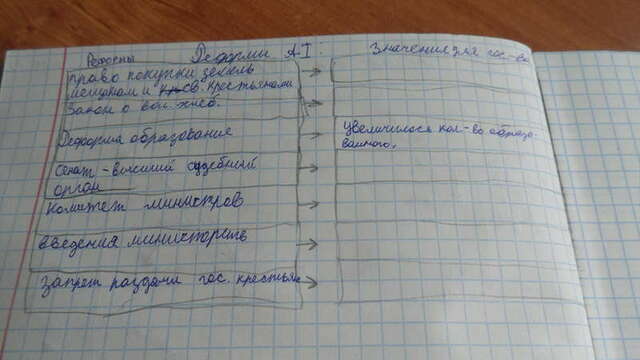 Реформы Реформи АI. Значения для гос-ва
право покупки земель
мещукам и св. крестьянами
Закон о вол. хлеб.
Реформа образование
Увеличилося кол-во образо-
ванного.
Сенат - высший судебный
орган
Комитет министров
введения министерств
Запрет раздачи гос. крестьян